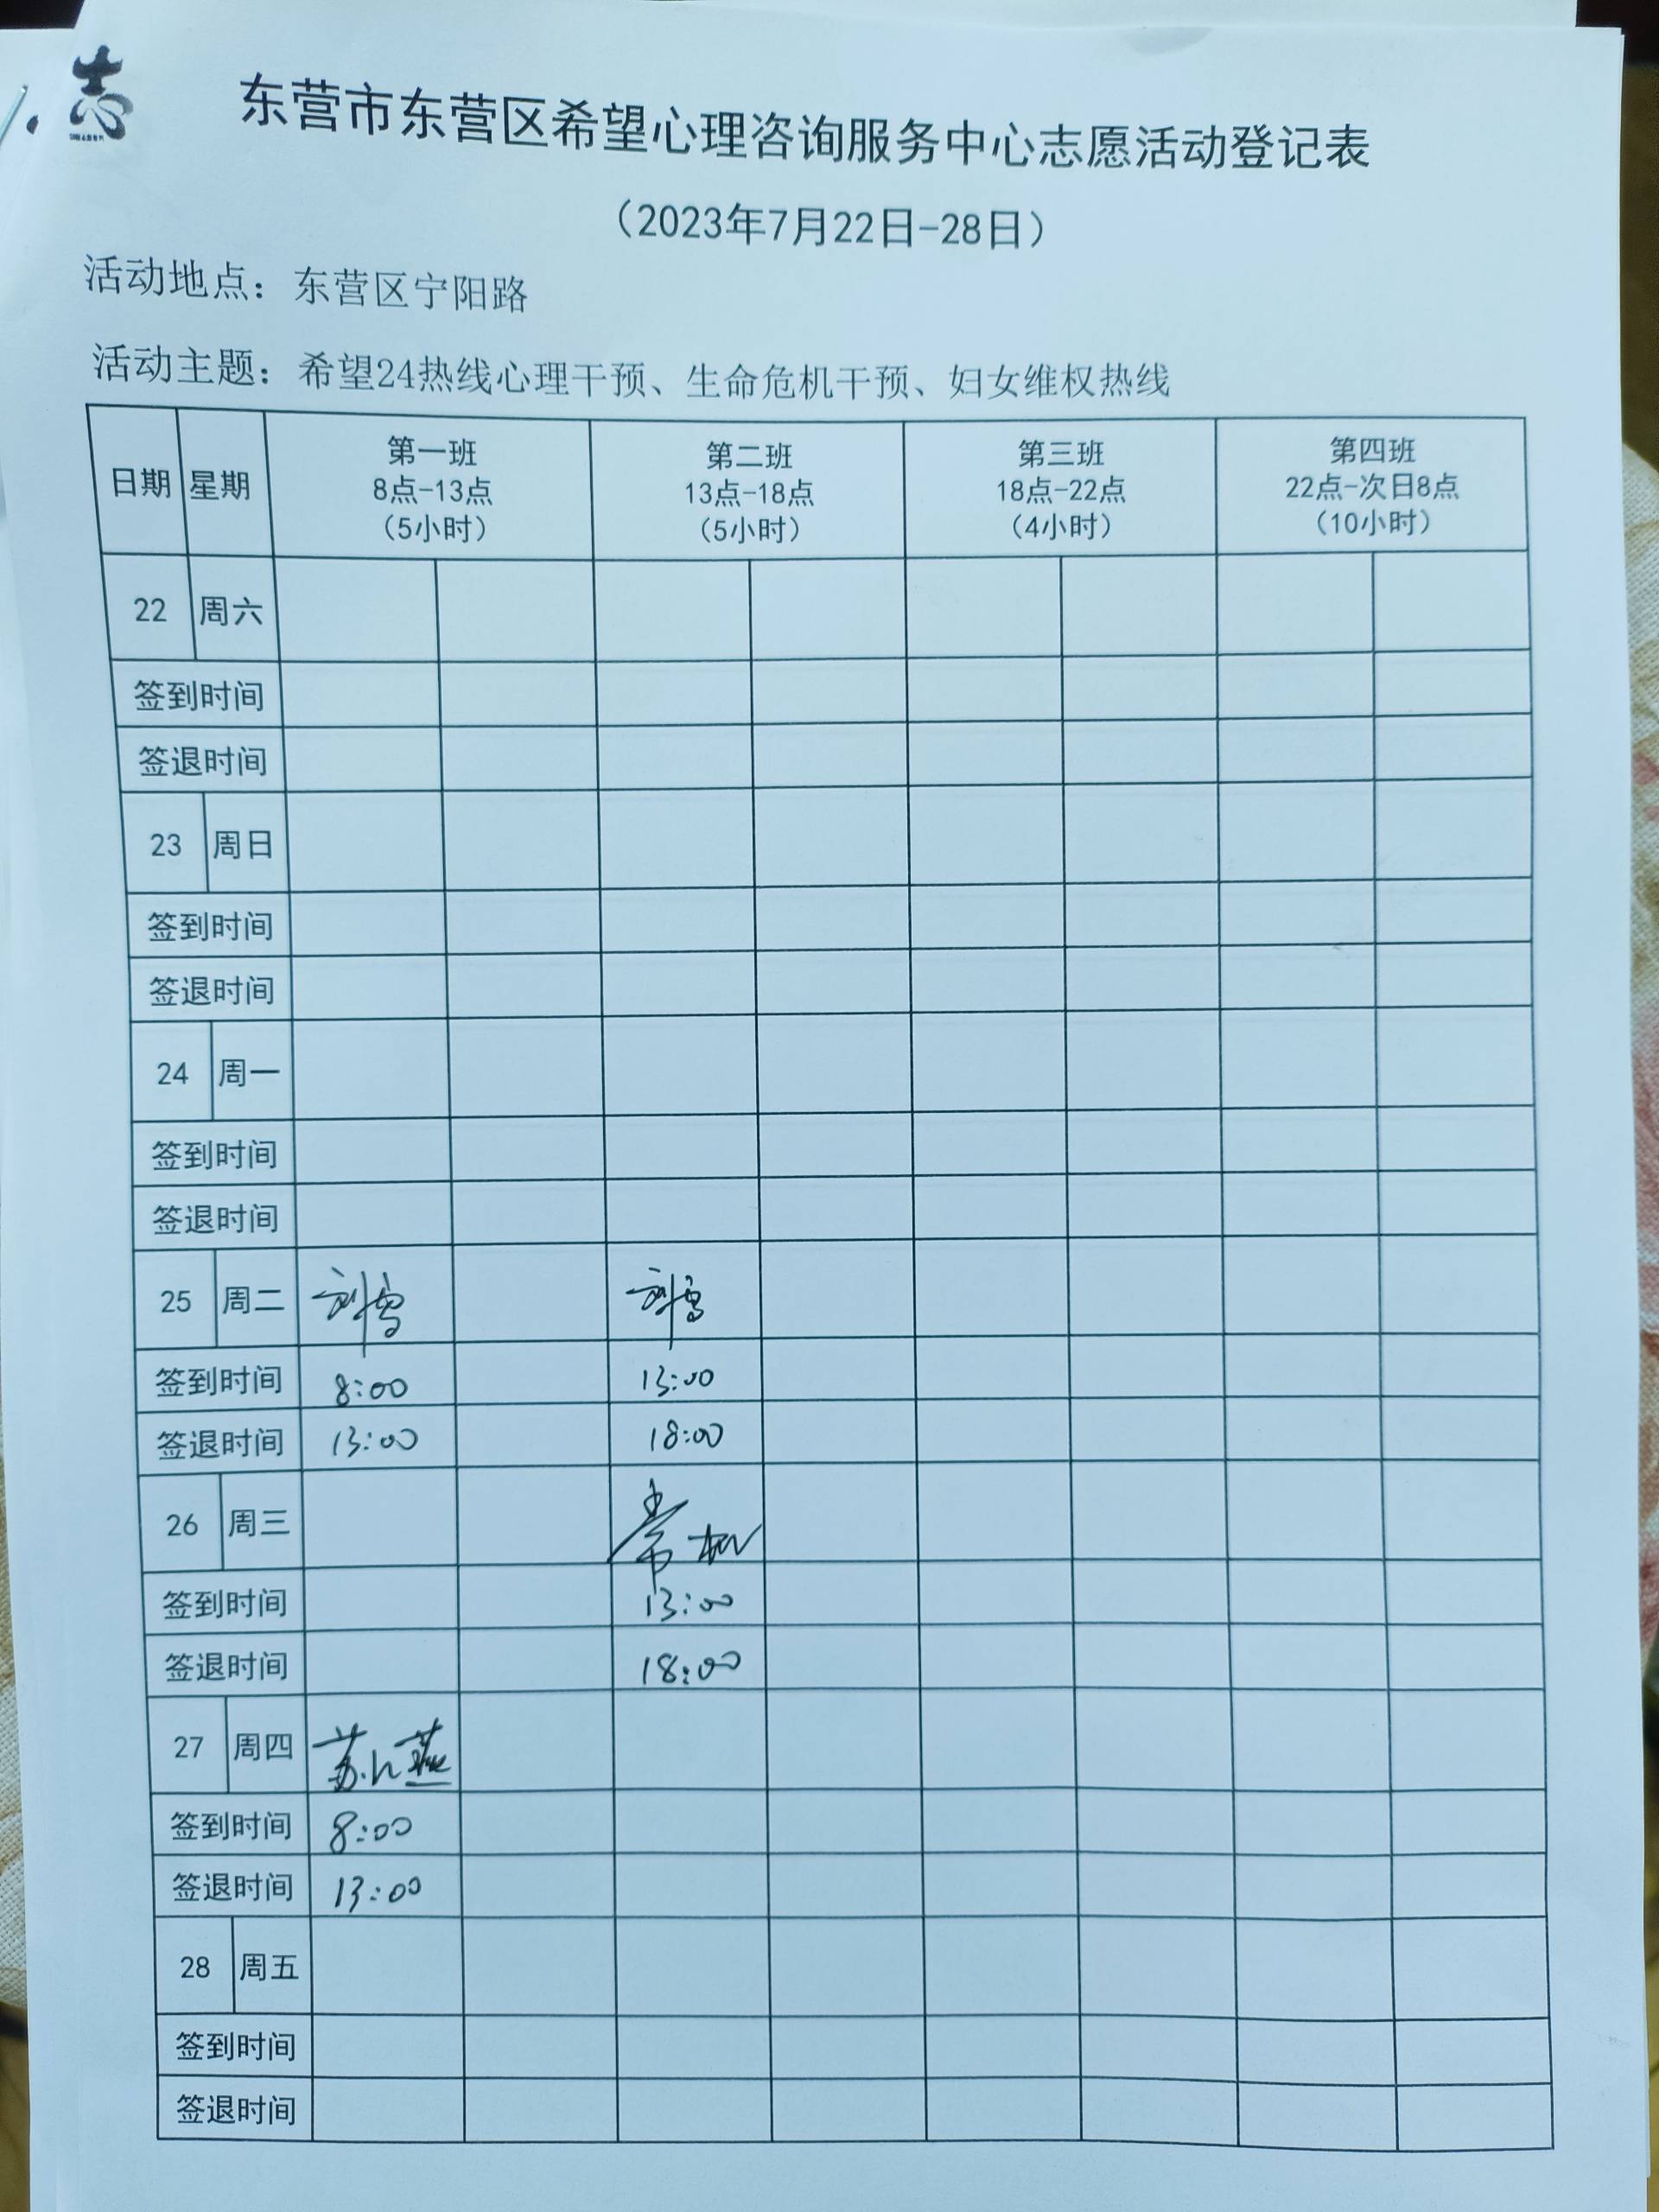 志
东营市东营区希望心理咨询服务中心志愿活动登记表
（2023年7月22日-28日）
活动地点：东营区宁阳路
活动主题：希望24热线心理干预、生命危机干预、妇女维权热线
日期 星期 第一班 8点-13点 （5小时） 第二班 13点-18点 （5小时） 第三班 18点-22点 （4小时） 第四班 22点-次日8点 （10小时）
22 周六
签到时间
签退时间
23 周日
签到时间
签退时间
24 周一
签到时间
签退时间
25 周二 刘雪 刘雪
签到时间 8:00 13:00
签退时间 13:00 18:00
26 周三 常
签到时间 13:00
签退时间 18:00
27 周四 苏小燕
签到时间 8:00
签退时间 13:00
28 周五
签到时间
签退时间